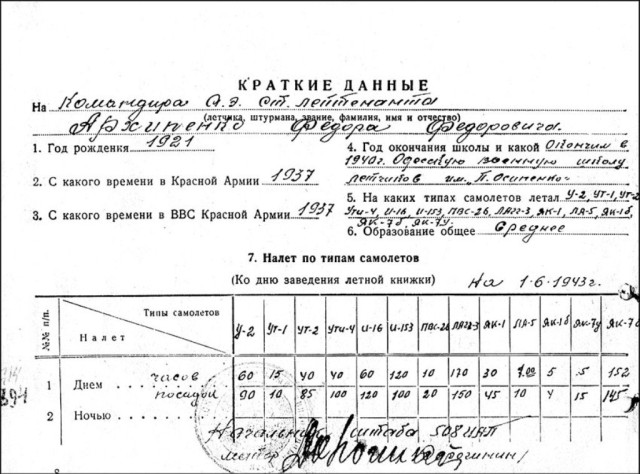 КРАТКИЕ ДАННЫЕ
На Командира А.Э. ст. лейтенанта
(летчика, штурмана, звание, фамилия, имя и отчество)
Архипенко Федора Федоровича
1. Год рождения 1921
2. С какого времени в Красной Армии 1937
3. С какого времени в ВВС Красной Армии 1937
4. Год окончания школы и какой Окончил в
1940г. Одесскую военную школу
летчиков им. П. Осипенко
5. На каких типах самолетов летал У-2, УТ-1, УТ-2
УТи-4, И-16, И-153, ПВС-26, ЛАГГ-3, ЯК-1, ЛА-5, ЯК-1б,
ЯК-7б, ЯК-7у.
6. Образование общее Среднее
7. Налет по типам самолетов
(Ко дню заведения летной книжки) На 1·6·1943г.
№№ п/п. Типы самолетов Налет У-2 УТ-1 УТ-2 УТи-4 И-16 И-153 ПВС-26 ЛАГГ-3 ЯК-1 ЛА-5 ЯК-1б ЯК-7у
1 Днем часов 60 15 40 40 60 120 10 170 30 5 5 152
посадок 90 10 85 100 120 100 20 150 45 10 4 15 145
2 Ночью
Начальник штаба 508 ИАП